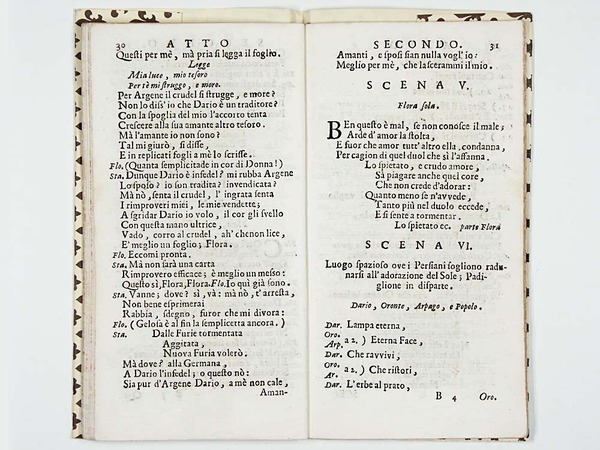 30 ATTO
Questi per mè, mà pria si legga il foglio.
Legge
Mia luce, mio tesoro
Per tè mi struggo, e moro.
Per Argene il crudel si strugge, e more?
Non lo diss' io che Dario è un traditore?
Con la spoglia del mio l'accorto tenta
Crescere alla sua amante altro tesoro.
Mà l'amante io non sono?
Tal mi giurò, si disse,
E in replicati fogli a mè lo scrisse.
Flo. (Quanta semplicitade in cor di Donna!)
Sta. Dunque Dario è infedel? mi rubba Argene
Lo sposo? io son tradita? invendicata?
Mà nò, senta il crudel, l' ingrata senta
I rimproveri miei, le mie vendette;
A sgridar Dario io volo, il cor gli svello
Con questa mano ultrice,
Vado, corro al crudel, ah' che non lice,
E' meglio un foglio; Flora.
Flo. Eccomi pronta.
Sta. Mà non sarà una carta
Rimprovero efficace; è meglio un messo:
Questo sì, Flora, Flora. Flo. Io quì già sono.
Sta. Vanne; dove? sì, và: mà nò, t' arresta,
Non bene esprimerai
Rabbia, sdegno, furor che mi divora:
Flo. (Gelosa è al fin la semplicetta ancora.)
Sta. Dalle Furie tormentata
Aggitata,
Nuova Furia volerò.
Mà dove? alla Germana,
A Dario l'infedel; o questo nò:
Sia pur d'Argene Dario, a mè non cale,
Aman-
SECONDO. 31
Amanti, e sposi sian nulla vogl' io:
Meglio per mè, che lascerammi il mio.
SCENA V.
Flora sola.
BEn questo è mal, se non conosce il male;
Arde d'amor la stolta,
E fuor che amor tutt' altro ella condanna,
Per cagion di quel duol che si l'affanna.
Lo spietato, e crudo amore
Sà piagare anche quel core,
Che non crede d'adorar:
Quanto meno se n'avvede,
Tanto più nel duolo eccede,
E si sente a tormentar.
Lo spietato ec. parte Flora
SCENA VI.
Luogo spazioso ove i Persiani sogliono radu-
narsi all' adorazione del Sole; Padi-
glione in disparte.
Dario, Oronte, Arpago, e Popolo.
Dar. Lampa eterna,
Oro.
Arp. a 2. ) Eterna Face,
Dar. Che ravvivi,
Oro.
Ar. a 2. ) Che ristori,
Dar. L'erbe al prato,
B 4 Oro.